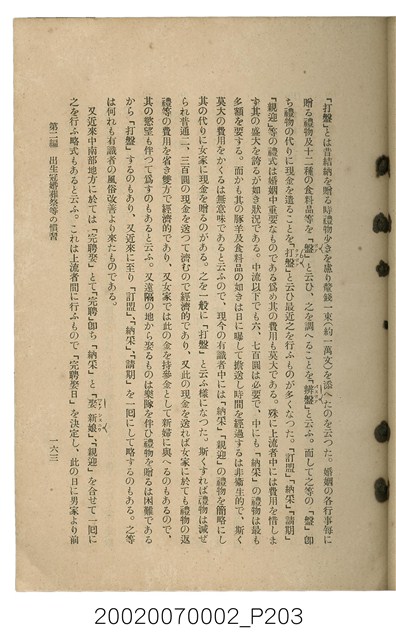 「打盤」とは昔結納を贈る時禮物少きを慮り聲錢一束(約一萬文)を添へたのを云つた。婚姻の各行事毎に
贈る禮物及十二種の食料品等を「盤」と云ひ、之を調へることを「辨盤」と云ふ。而して之等の「盤」卽
ち禮物の代りに現金を遣ることを「打盤」と云ひ最近之を行ふものが多くなつた。「訂盟」「納采」「請期」
「親迎」等の禮式は婚姻中重要なものである爲め其の費用も莫大である。殊に上流者中には費用を惜しま
ず其の盛大を誇るが如き狀況である。中流以下でも六、七百圓は必要で、中にも「納采」の禮物は最も
多額を要する。而かも其の豚羊及食料品の如きは日に曝して擔送し時間を經過するは非衞生的で、斯く
莫大の費用をかくるは無意味であると云ふので、現今の有識者中には「納采」「親迎」の禮物を簡略にし
其の代りに女家に現金を贈るのがある。之を一般に「打盤」と云ふ樣になつた。斯くすれば禮物は減ぜ
られ普通二、三百圓の現金を送つて濟むので經濟的であり、又此の現金を送れば女家に於ても禮物の返
禮等の費用を省き雙方で經濟的であり、又女家では此の金を持參金として新婦に與へるのもあるので、
其の慾望も伴つて爲すのもあると云ふ。又遠隔の地から娶るものは樂隊を伴ひ禮物を贈るは困難である
から「打盤」するのもあり、又近來に至り「訂盟」「納采」「請期」を一囘にして略するのもある。之等
は何れも有識者の風俗改善より來たものである。
又近來中南部地方に於ては「完聘娶」とて「完聘」卽ち「納采」と「娶新娘」「親迎」を合せて一囘に
之を行ふ略式もあると云ふ。これは上流者間に行ふもので「完聘娶日」を決定し、此の日に男家より前
第二編 出生冠婚葬祭等の慣習
一六三
20020070002_P203